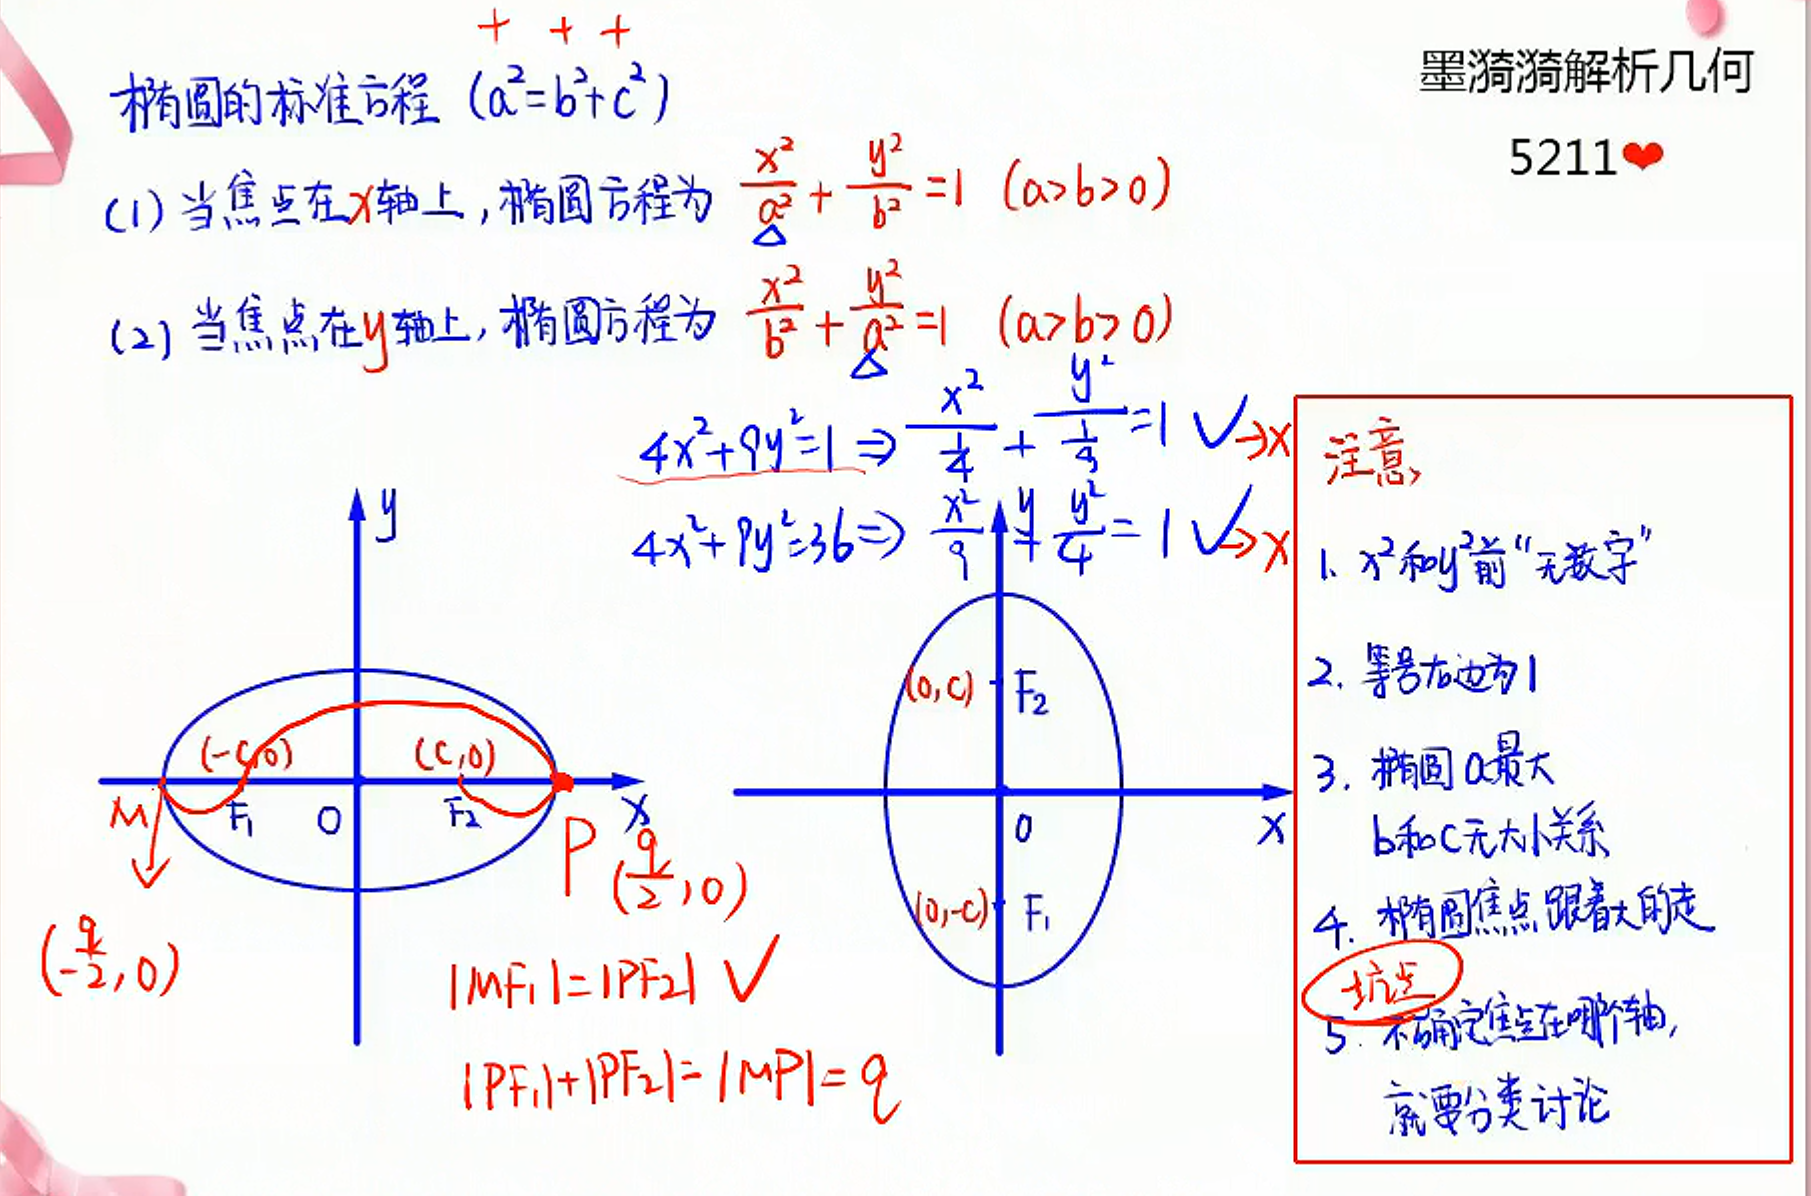 + + +
椭圆的标准方程 (a²=b²+c²)
墨漪漪解析几何
5211❤
(1) 当焦点在x轴上,椭圆方程为 x²/a² + y²/b² =1 (a>b>0)
(2) 当焦点在y轴上,椭圆方程为 x²/b² + y²/a² =1 (a>b>0)
4x²+9y²=1 ⇒ x²/(1/4) + y²/(1/9) =1 ✓→x
4x²+9y²=36 ⇒ x²/9 + y²/4 = 1 ✓→x
y
(-c,0) (c,0)
M F₁ O F₂ x
P (q/2,0)
(-q/2,0)
|MF₁|=|PF₂| ✓
|PF₁|+|PF₂|=|MP|=q
y
(0,c) F₂
O x
(0,-c) F₁
注意,
1. x²和y²前“无数字”
2. 等号右边为1
3. 椭圆a最大
b和c无大小关系
4. 椭圆焦点跟着大的走
坑点
5. 不确定焦点在哪个轴,
就要分类讨论